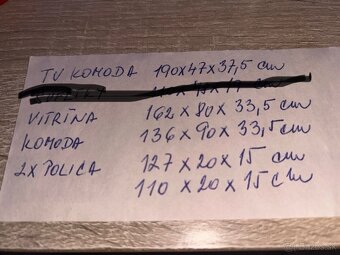 TV KOMODA 190x47x37,5 cm
VITRÍNA 162x80x33,5cm
KOMODA 136x90x33,5cm
2X POLICA 127x20x15 cm
110x20x15cm